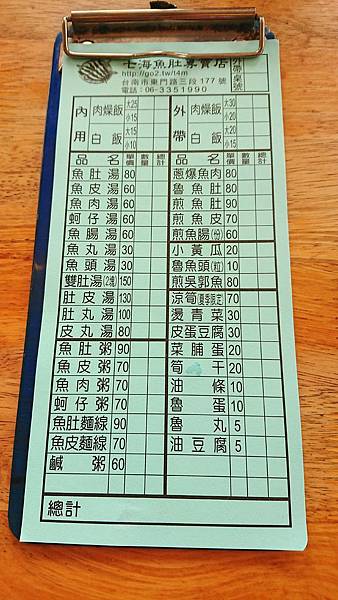 七海魚肚專賣店
http://go2.tw/t4m
台南市東門路三段177號
電話：06-3351990
外帶 桌號
內用 肉燥飯 大25 小15
白飯 大15 小10
外帶 肉燥飯 大30 小20
白飯 大20 小10
品名 單價 數量 總計 品名 單價 數量 總計
魚肚湯 80 蔥爆魚肉 80
魚皮湯 60 魯魚肚 80
魚肉湯 60 煎魚肚 90
蚵仔湯 60 煎魚皮 70
魚腸湯 60 煎魚腸(份) 60
魚丸湯 30 小黃瓜 20
魚頭湯 30 魯魚頭(粒) 10
雙肚湯(2塊) 150 煎吳郭魚 80
肚皮湯 130 涼筍(夏季限定) 70
肚丸湯 100 燙青菜 30
皮丸湯 80 皮蛋豆腐 30
魚肚粥 90 菜脯蛋 20
魚皮粥 70 筍干 20
魚肉粥 70 油條 10
蚵仔粥 70 魯蛋 10
魚肚麵線 90 魯丸 5
魚皮麵線 70 油豆腐 5
鹹粥 60
總計